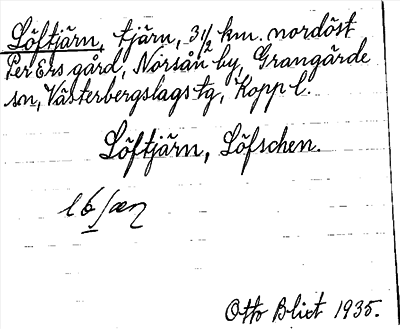 Löftjärn, tjärn, 3 1/2 km. nordöst
Per Ers gård, Norsån by, Grangärde
sn, Västerbergslags tg, Kopp l.
Löftjärn, Löfschen.
Otto Blixt 1935.